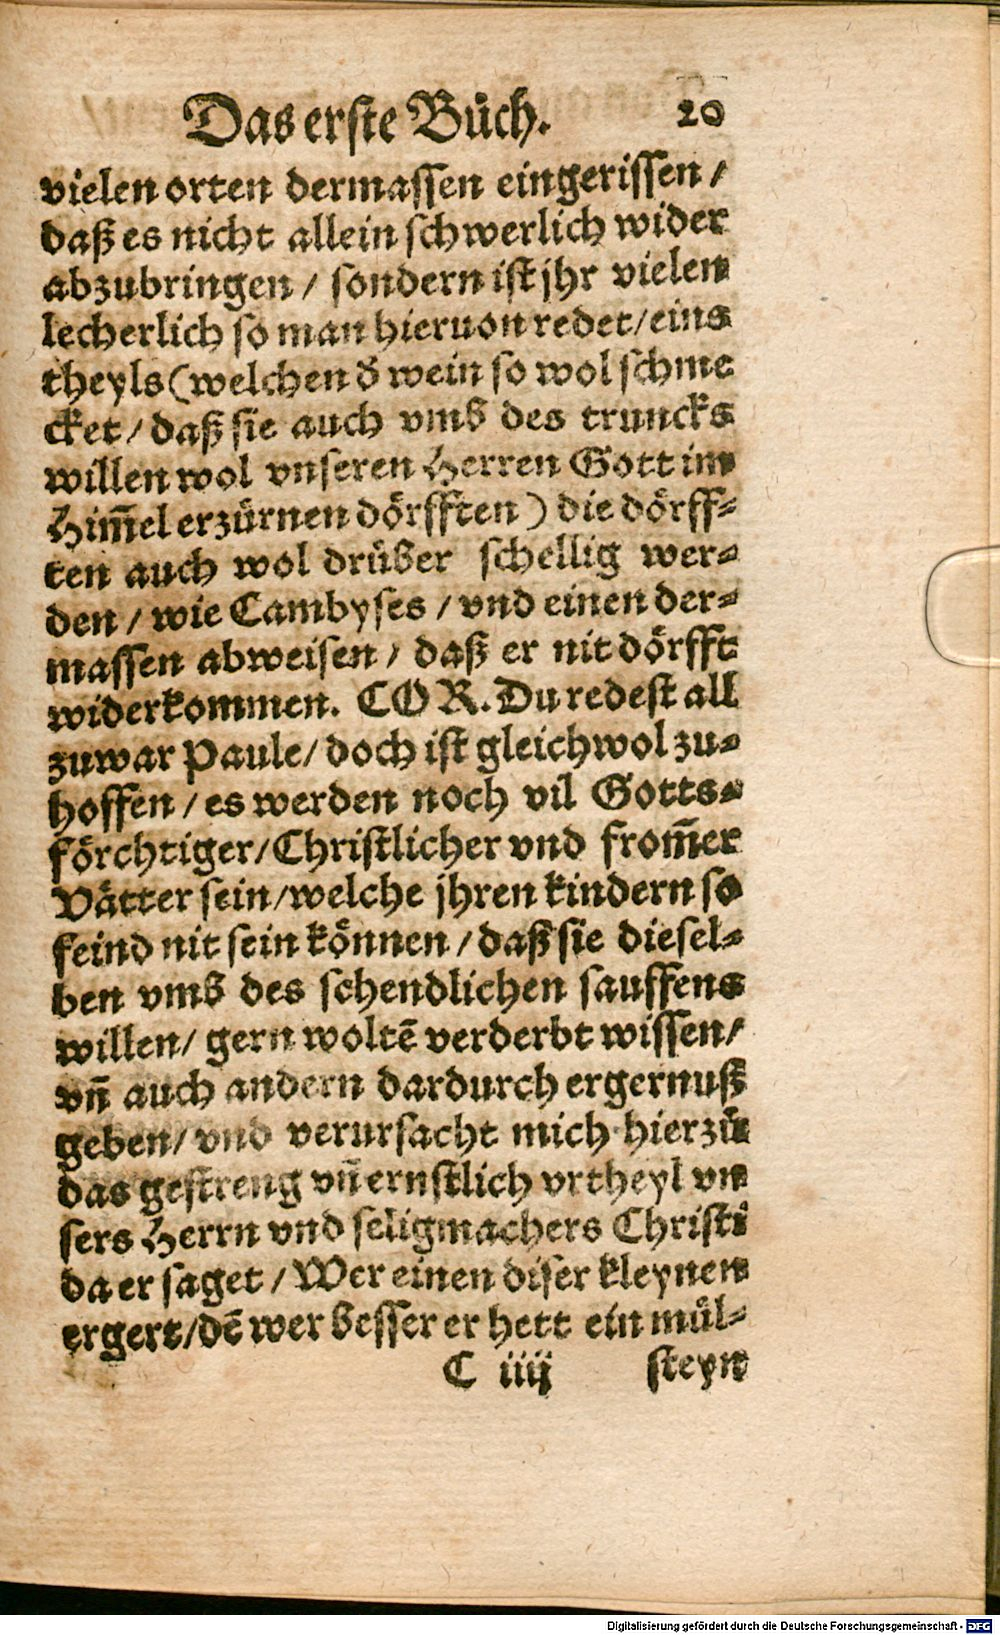 Das erste Bůch. 20
vielen orten dermassen eingerissen /
daß es nicht allein schwerlich wider
abzubringen / sondern ist jhr vielen
lecherlich so man hieruon redet / eins
theyls (welchen d̄ wein so wol schme
cket / daß sie auch vmb des truncks
willen wol vnseren Herren Gott im
Him̄el erzürnen dörfften ) die dörff⸗
ten auch wol drüber schellig wer⸗
den / wie Cambyses / vnd einen der⸗
massen abweisen / daß er nit dörfft
widerkommen. COR. Du redest all
zuwar Paule / doch ist gleichwol zu⸗
hoffen / es werden noch vil Gotts⸗
förchtiger / Christlicher vnd from̄er
Vätter sein / welche jhren kindern so
feind nit sein können / daß sie diesel⸗
ben vmb des schendlichen sauffens
willen / gern woltē verderbt wissen /
vn̄ auch andern dardurch ergernuß
geben / vnd verursacht mich hierzů
das gestreng vn̄ ernstlich vrtheyl vn
sers Herrn vnd seligmachers Christi
da er saget / Wer einen diser kleynen
ergert / dē wer besser er hett ein můl⸗
C iiij steyn
Digitalisierung gefördert durch die Deutsche Forschungsgemeinschaft - DFG